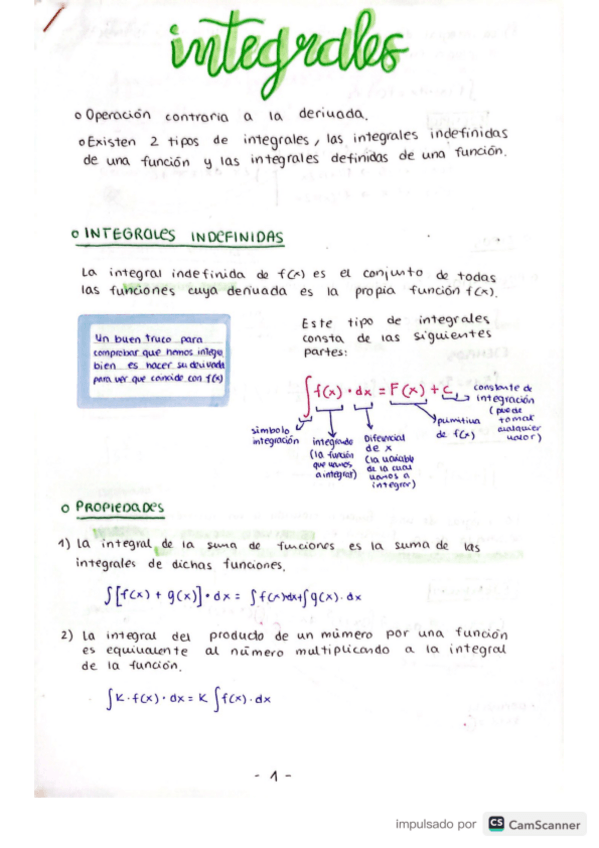 integrales
o Operación contraria a la derivada.
o Existen 2 tipos de integrales, las integrales indefinidas
de una función y las integrales definidas de una función.
o INTEGRALES INDEFINIDAS
La integral indefinida de f(x) es el conjunto de todas
las funciones cuya derivada es la propia función f(x).
Un buen truco para
comprobar que hemos integr
bien es hacer su derivada
para ver que coincide con f(x)
Este tipo de integrales
consta de las siguientes
partes:
∫ f(x) · dx = F(x) + C
símbolo
integración
integrando
(la función
que vamos
a integrar)
Diferencial
de x
(la variable
de la cual
vamos a
integrar)
primitiva
de f(x)
constante de
integración
(puede
tomar
cualquier
valor)
o PROPIEDADES
1) La integral de la suma de funciones es la suma de las
integrales de dichas funciones.
∫[f(x) + g(x)] · dx = ∫f(x)·dx+∫g(x)·dx
2) La integral del producto de un número por una función
es equivalente al número multiplicando a la integral
de la función.
∫K·f(x)·dx = K ∫f(x)·dx
- 1 -
impulsado por CS CamScanner